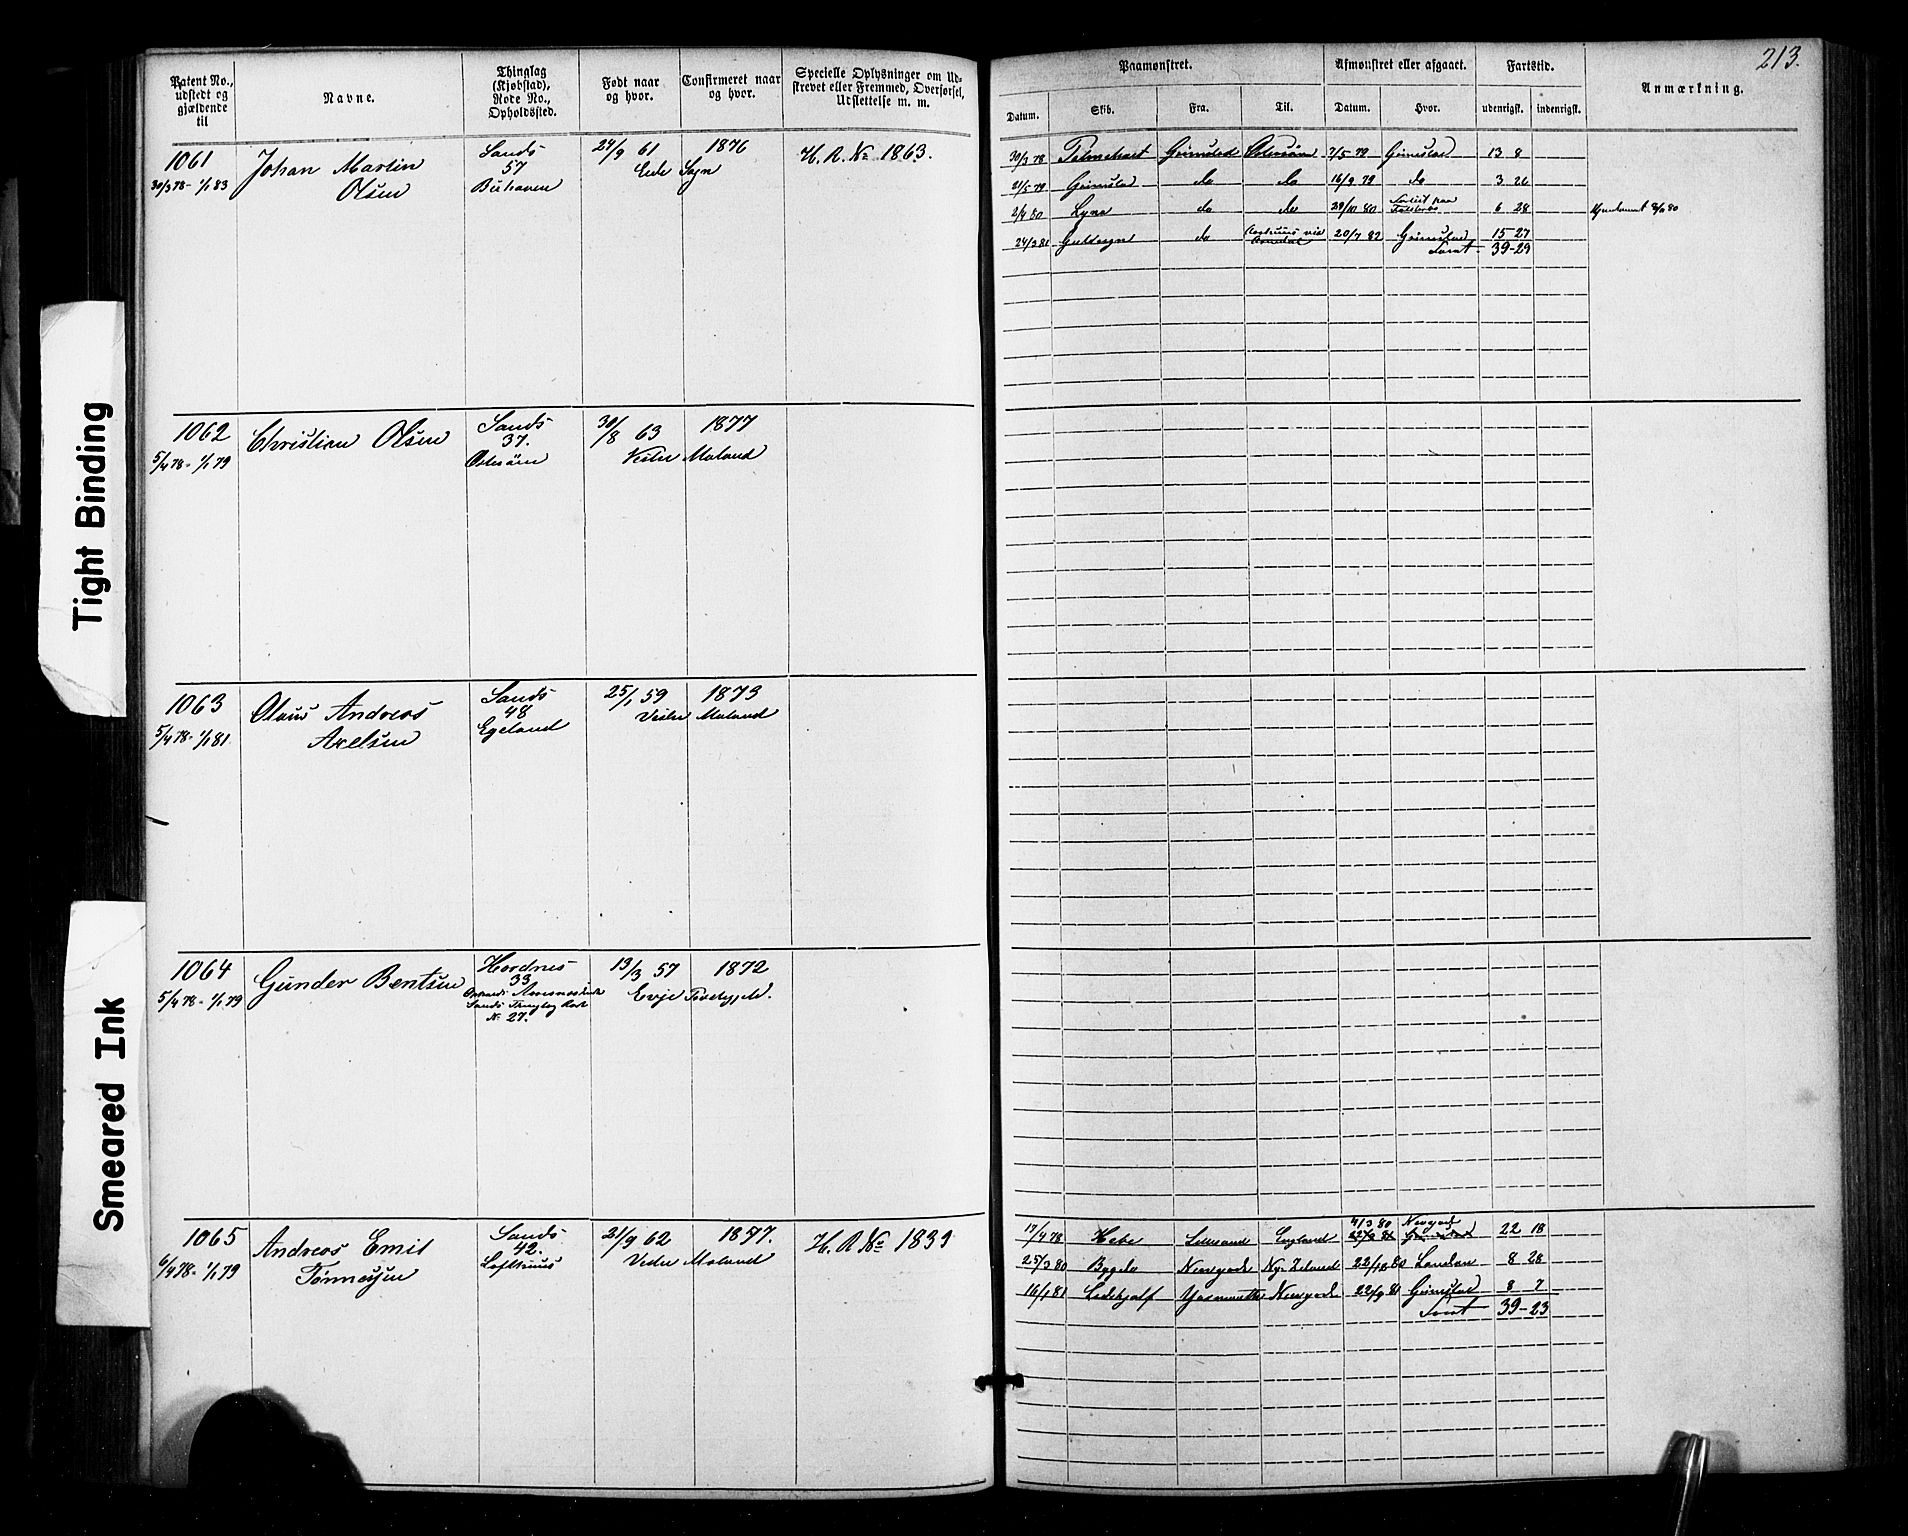 213.
Patent No., udstedt og gjældende til
Navne.
Thinglag (Kjøbstad), Rode No., Opholdssted.
Født naar og hvor.
Confirmeret naar og hvor.
Specielle Oplysninger om Udskrevet eller Fremmed, Overførsel, Udslettelse m. m.
Paamønstret.
Afmønstret eller afgaaet.
Fartstid.
Anmærkning.
Datum. Skib. Fra. Til. Datum. Hvor. udenrigsk. indenrigsk.
1061 Johan Martin Sands 24/9 61 1876 H. R. No 1863.
30/3 78 - 1/1 83 Olsen 57 Eide Sogn
30/3 78 Grimstad 7/5 79 Grimstad 13 8
21/5 79 Grimstad do do 16/9 79 do 3 26
2/4 80 Lyna do do 29/10 80 6 28
24/3 81 do 20/7 82 Grimstad 15-27
39-29
1062 Christian Olsen Sands 30/8 63 1877
5/4 78 - 1/1 79 37. Vestre Moland
1063 Olaus Andreas Sands 25/1 59 1873
5/4 78 - 1/1 81 Axelsen 48 Egeland Vestre Moland
1064 Gunder Bentsen 33 13/3 57 1872
5/4 78 - 1/1 79 Sands Thinglag Rode No 27. Evje
1065 Andreas Emil Sands 21/9 62 1877. H. R No 1839
6/4 78 - 1/1 79 Tønnesen 42. Lofthuus Vestre Moland
17/4 78 Hebe Lillesand England 4/3 80 Newyork 22 18
25/3 80 Bygdo Newyork Ny Zeland 22/10 80 London 8 28
16/1 81 Newyork 22/9 81 Grimstad 8 7
39-23
Tight Binding
Smeared Ink